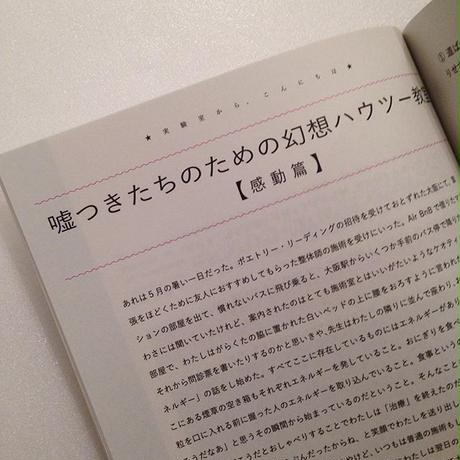 ★ 実験室から、こんにちは ★
嘘つきたちのための幻想ハウツー教室
【感動篇】
あれは5月の暑い一日だった。ポエトリー・リーディングの招待を受けておとずれた大阪にて、
張をほどくために友人におすすめしてもらった整体師の施術を受けにいった。Air BnBで借りた
ションの部屋を出て、慣れないバスに飛び乗ると、大阪駅からいくつか手前のバス停で降り
わさには聞いていたけれど、案内されたのはとても施術室とはいいがたいようなケオティ
部屋で、わたしはがらくたの脇に置かれた白いベッドの上に腰をおろすように言われ
それから問診票を書いたりするのかと思いきや、先生はわたしの隣りに並んで座り、お
ネルギー」の話をし始めた。すべてここに存在しているものにはエネルギーがあり
こにある煙草の空き箱もそれぞれエネルギーを発していること。おにぎりを食べ
粒を口に入れる前に握った人のエネルギーを取り込んでいること。食事という
そうだなあ」と思うその瞬間から始まっているのだということ。そんなこと
こうだとおしゃべりすることでわたしは「治療」を終えたのだ
ぶんだったからね、と笑顔でわたしを送り出し
けど、いつもは普通の施術もし
わたしは翌日の
① 遊ば
りせ